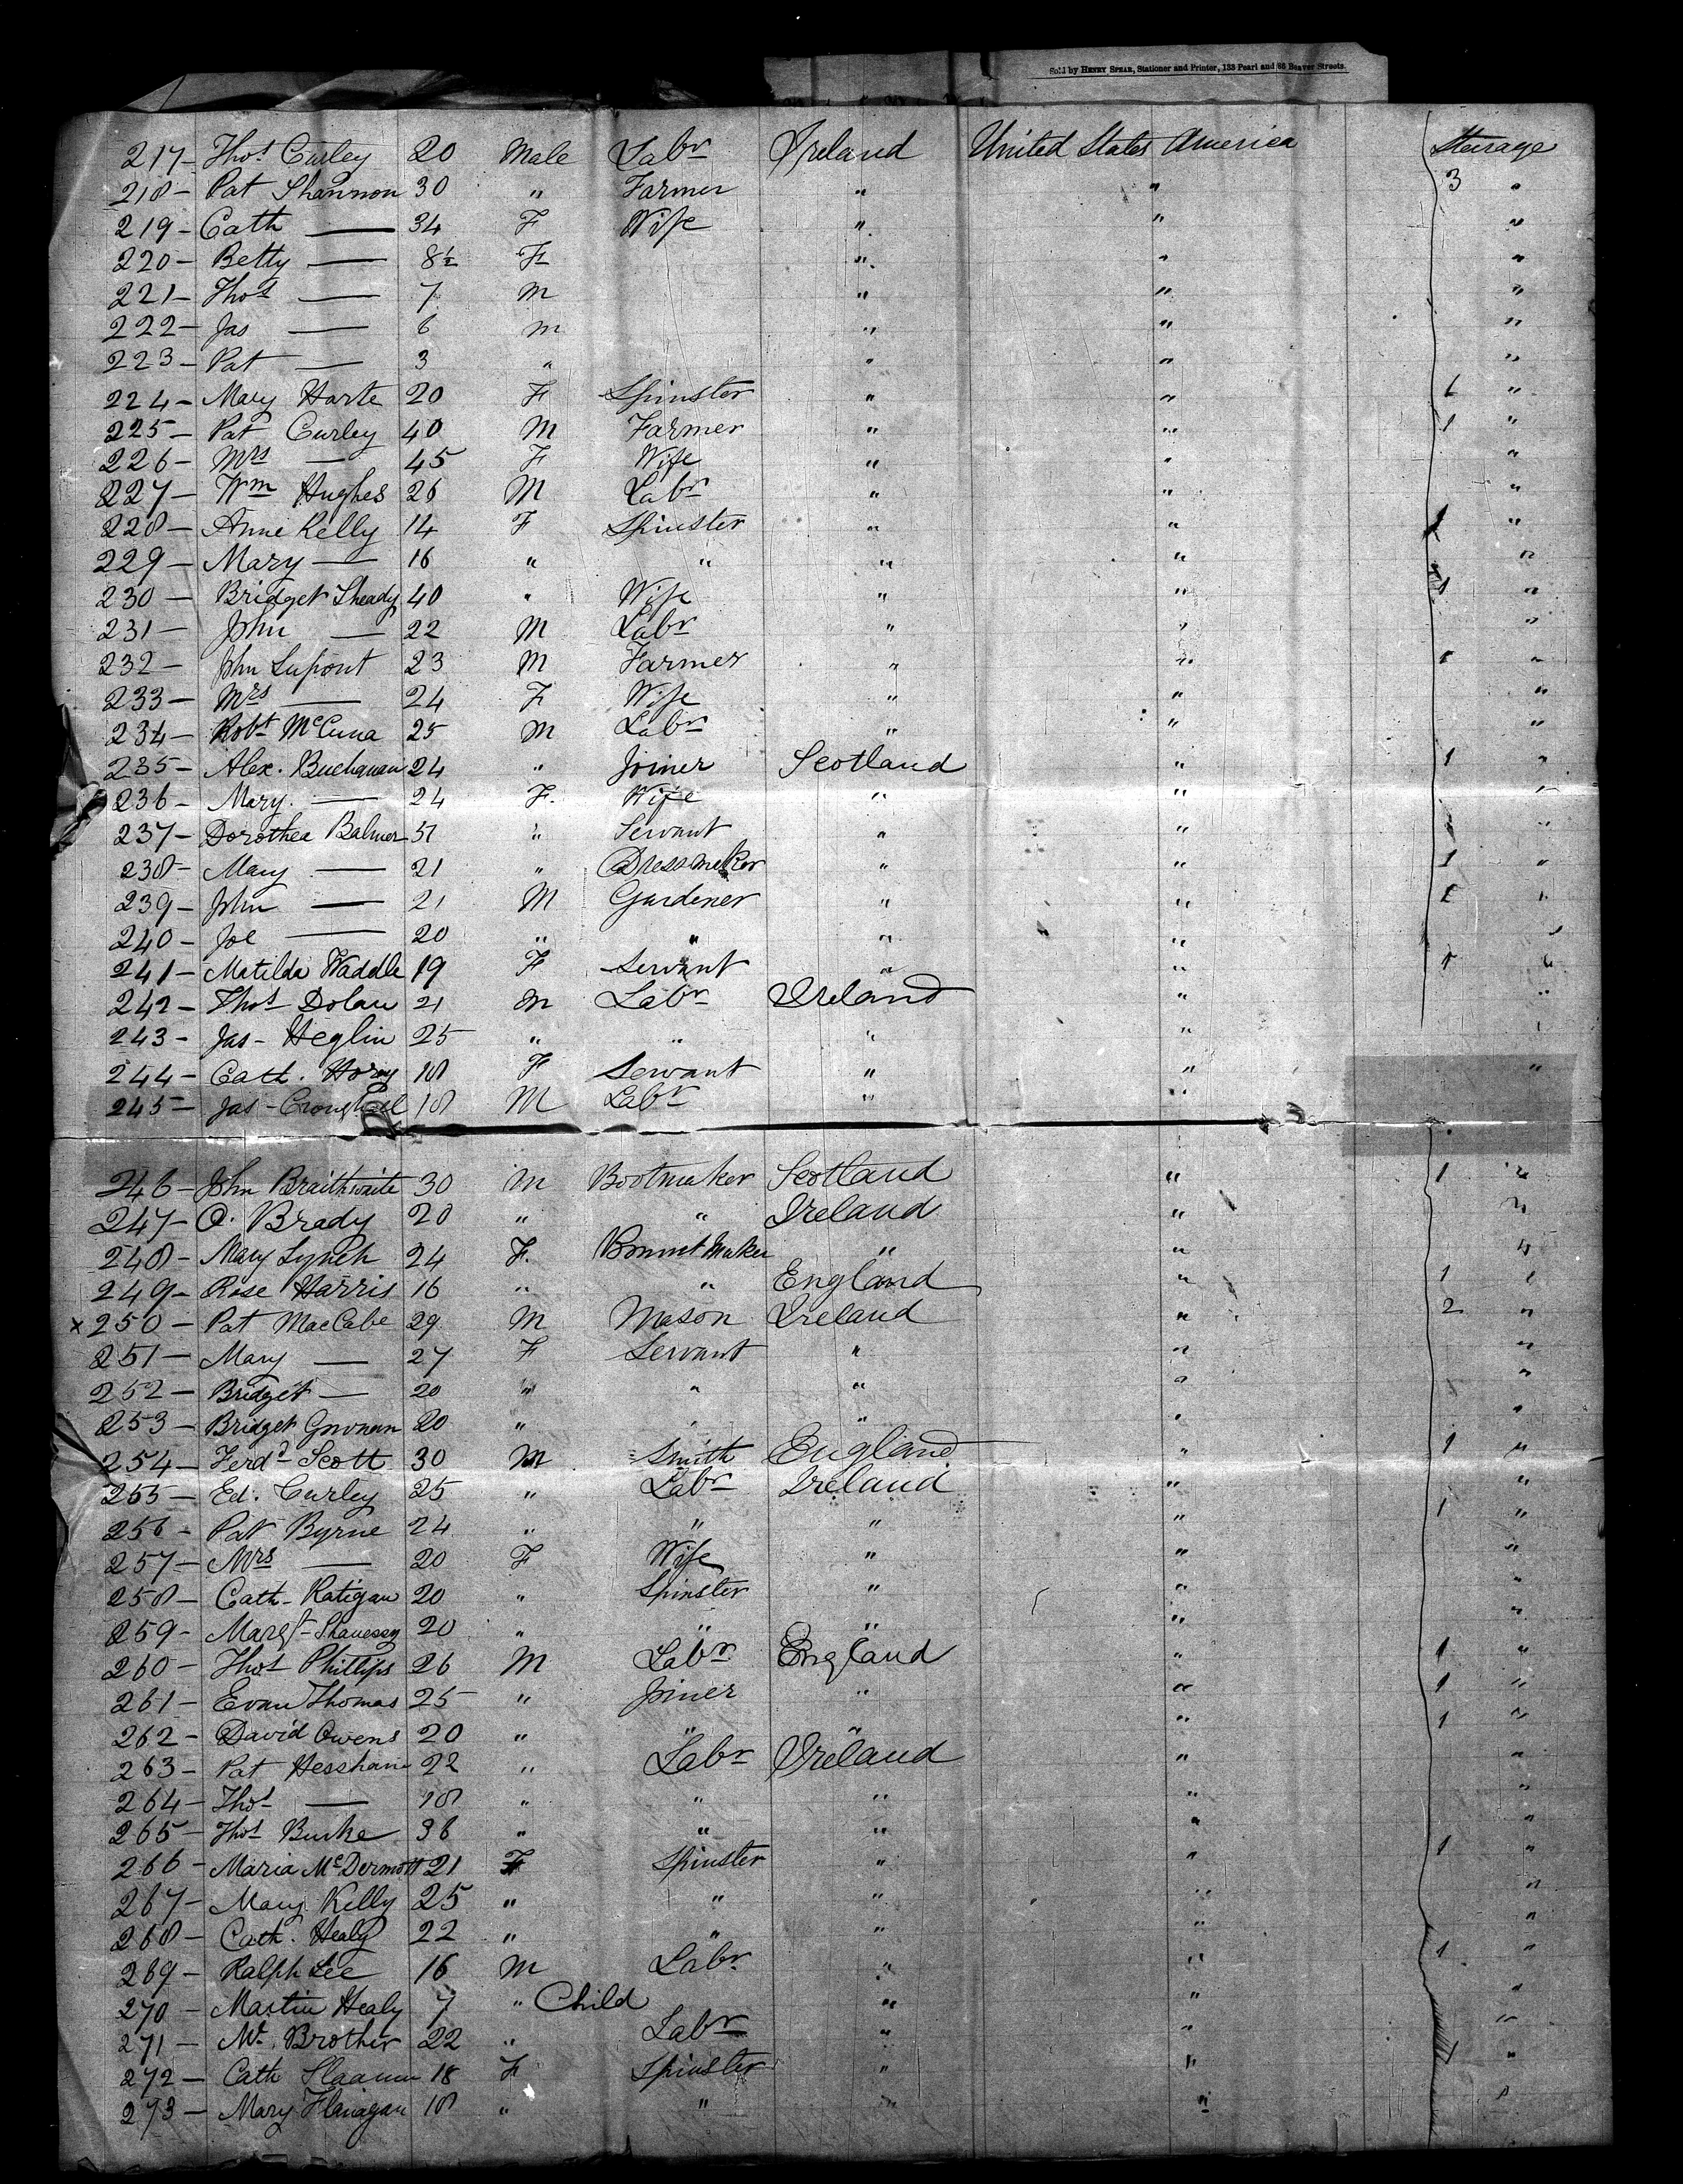 Sold by HENRY SPEAR, Stationer and Printer, 133 Pearl and 66 Beaver Streets.
217- Thos Curley 20 Male Labr Ireland United States America Steerage
218- Pat Shannon 30 " Farmer " " 3 "
219- Cath — 34 F Wife " " "
220- Betty — 8½ F " " "
221- Thos — 7 M " " "
222- Jas — 6 M " " "
223- Pat — 3 " " " "
224- Mary Harte 20 F Spinster " " "
225- Pat Curley 40 M Farmer " " 1 "
226- Mrs — 45 F Wife " " "
227- Wm Hughes 26 M Labr " " "
228- Anne Kelly 14 F Spinster " " 1 "
229- Mary — 16 " " " " "
230- Bridget Sheady 40 " Wife " " 1 "
231- John — 22 M Labr " " "
232- John Lupont 23 M Farmer " " 1 "
233- Mrs — 24 F Wife " " "
234- Robt McCuna 25 M Labr " " "
235- Alex. Buchanan 24 " Joiner Scotland " 1 "
236- Mary. — 24 F. Wife " " "
237- Dorothea Balmer 51 " Servant " " "
238- Mary — 21 " Dressmaker " " 1 "
239- John — 21 M Gardener " " "
240- Joe — 20 " " " " "
241- Matilda Waddle 19 F Servant " " 1 "
242- Thos Dolan 21 M Labr Ireland " "
243- Jas- Heglin 25 " " " " "
244- Cath. 18 F Servant " " "
245- Jas- 18 M Labr " "
246- John Braithwaite 30 M Bootmaker Scotland " 1 "
247- O. Brady 20 " " Ireland " "
248- Mary Lynch 24 F. Bonnet Maker " " "
249- Rose Harris 16 " " England " 1 "
x 250- Pat MacCabe 29 M Mason Ireland " 2 "
251- Mary — 27 F Servant " " "
252- Bridget — 20 " " " " "
253- Bridget 20 " " " " "
254- Ferdd Scott 30 M Smith England " 1 "
255- Ed. Curley 25 " Labr Ireland " "
256- Pat Byrne 24 " " " " 1 "
257- Mrs — 20 F Wife " " "
258- Cath- Ratigan 20 " Spinster " " "
259- Margt- Shanessy 20 " " " " "
260- Thos Phillips 26 M Labr England " 1 "
261- Evan Thomas 25 " Joiner " " 1 "
262- David Owens 20 " " " " 1 "
263- Pat 22 " Labr Ireland " "
264- Thos — 18 " " " " "
265- Thos Burke 36 " " " " "
266- Maria McDermott 21 F Spinster " " 1 "
267- Mary Kelly 25 " " " " "
268- Cath. Healy 22 " " " " "
269- Ralph Lee 16 M Labr " " 1 "
270- Martin Healy 7 " Child " " "
271- Brother 22 " Labr " " "
272- Cath 18 F Spinster " " "
273- Mary Flanagan 18 " " " " "